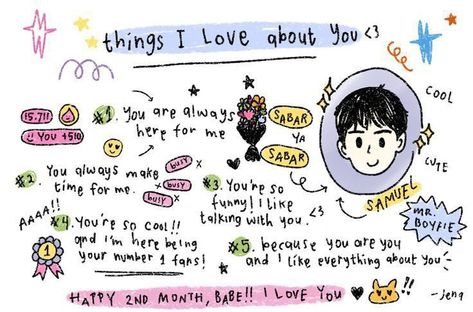 things I Love about You <3
15.7!!
!! You +510
#1. You are always
here for me
SABAR
YA
SABAR
COOL
CUTE
SAMUEL
MR.
BOYFIE
#2. You always make
time for me.
busy x
busy x
busy x
#3. You're so
funny! I like
talking with you. <3
AAAA!!
#4. You're so cool!!
and i'm here being
your number 1 fans!
1
#5. because you are you
and I like everything about you
HAPPY 2ND MONTH, BABE!! I LOVE YOU
!!
-jena